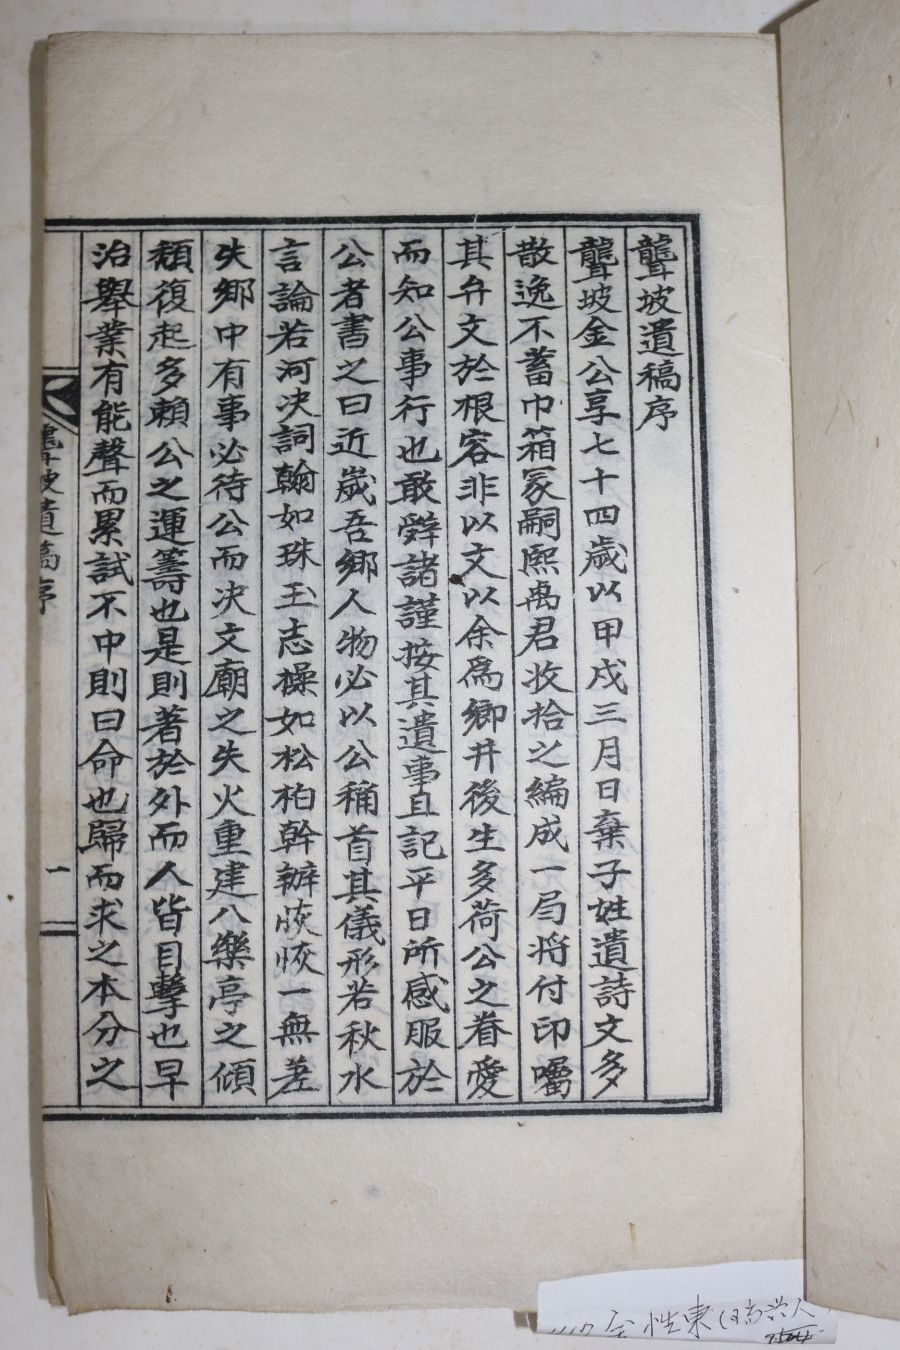 聾坡遺稿序
聾坡金公享七十四歲以甲戌三月日棄子姓遺詩文多
散逸不蓄巾箱冢嗣熙禹君收拾之編成一局将付印囑
其弁文於根容非以文以余爲鄉井後生多荷公之眷愛
而知公事行也敢辤諸謹按其遺事且記平日所感服於
公者書之曰近歲吾鄉人物必以公稱首其儀形若秋水
言論若河决詞翰如珠玉志操如松柏幹辦恢恢一無差
失鄉中有事必待公而决文廟之失火重建八樂亭之傾
頹復起多賴公之運籌也是則著於外而人皆目擊也早
治舉業有能聲而累試不中則曰命也歸而求之本分之
聾坡遺稿序
一
金性東(日高兴人)